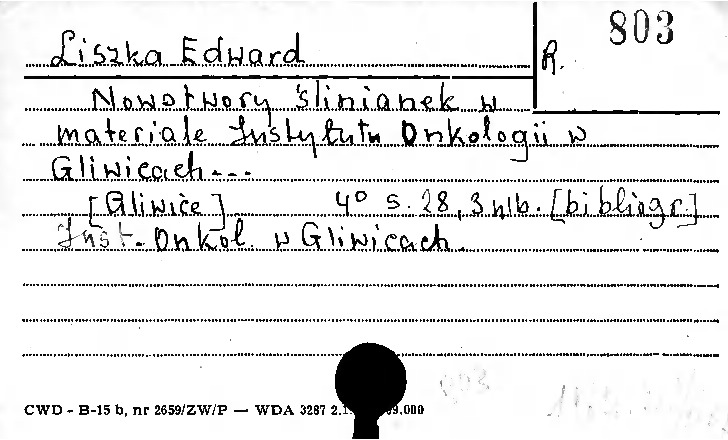 Liszka Edward
R. 803
Nowotwory ślinianek w
materiale Instytutu Onkologii w
Gliwicach...
[Gliwice] 4° s. 28, 3 nlb. [bibliogr.]
Inst. Onkol. w Gliwicach.
CWD - B-15 b, nr 2659/ZW/P — WDA 3287 2.